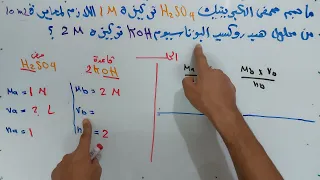 ما حجم حمض الكبريتيك H₂SO₄ تركيزه 1M اللازم لمعايرة 10 ml
من محلول هيدروكسيد البوتاسيوم KOH تركيزه 2M ؟
حمض
H₂SO₄
Ma = 1 M
Va = ? L
na = 1
قاعدة
2KOH
Mb = 2 M
Vb =
= 2
الحل
Ma
Mb x Va
nb